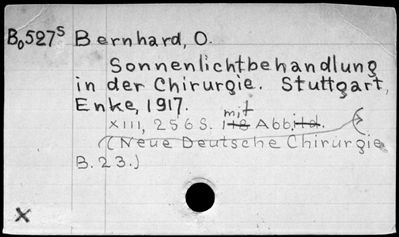 Bo527S Bernhard, O.
Sonnenlichtbehandlung
in der Chirurgie. Stuttgart,
Enke, 1917.
XIII, 256 S. mit Abb.
(Neue Deutsche Chirurgie
B. 23.)
X